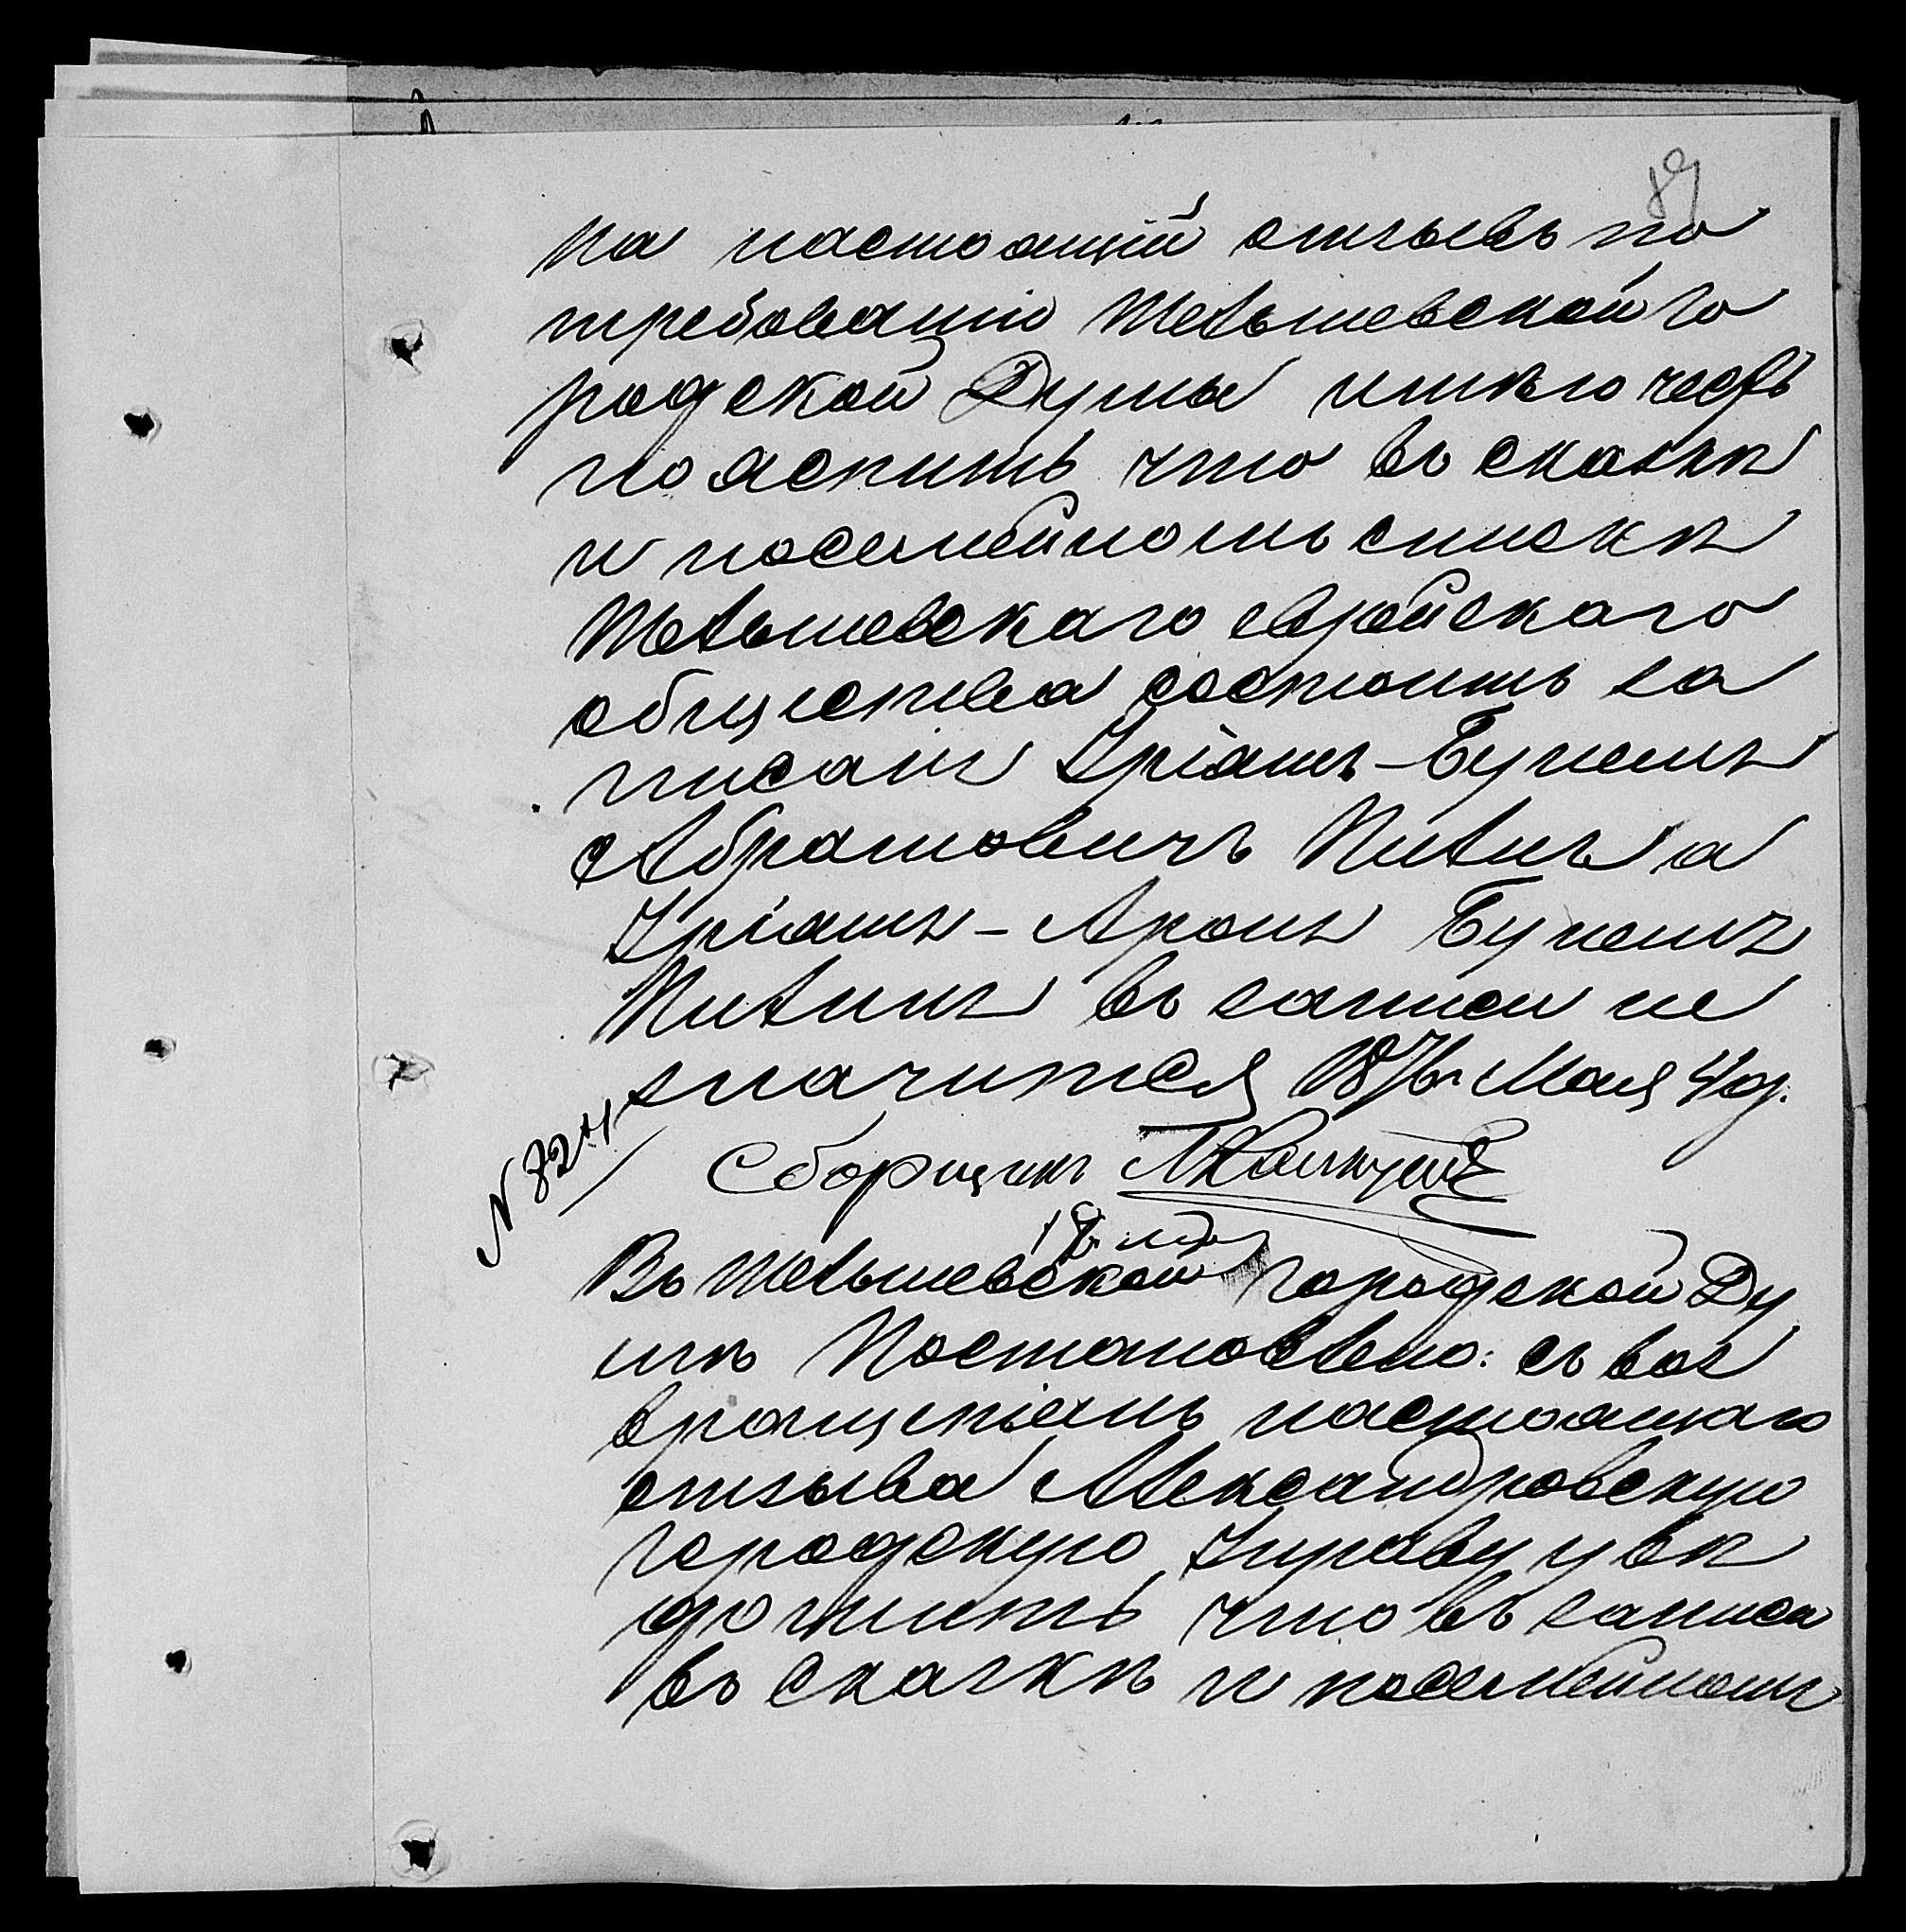 89
На настоящій отзывъ по
требованію Тельшевской Го
родской Думы имѣю честь
пояснить что въ сказкѣ
и посемейномъ спискѣ
Тельшевскаго еврейскаго
общества состоитъ за
писанъ Уріашъ-Бунемъ
Абрамовичъ Миллъ а
Уріашъ-Аронъ Бунемъ
въ записи не
значится 1876 г. Мая 4 д.
№ 824
Сборщикъ
18
Въ Тельшевской Городской Ду
мѣ Постановлено: съ воз
вращеніемъ настоящаго
отзыва Александровскую
городскую Управу увѣ
домить что въ записи
въ сказкѣ и посемейномъ